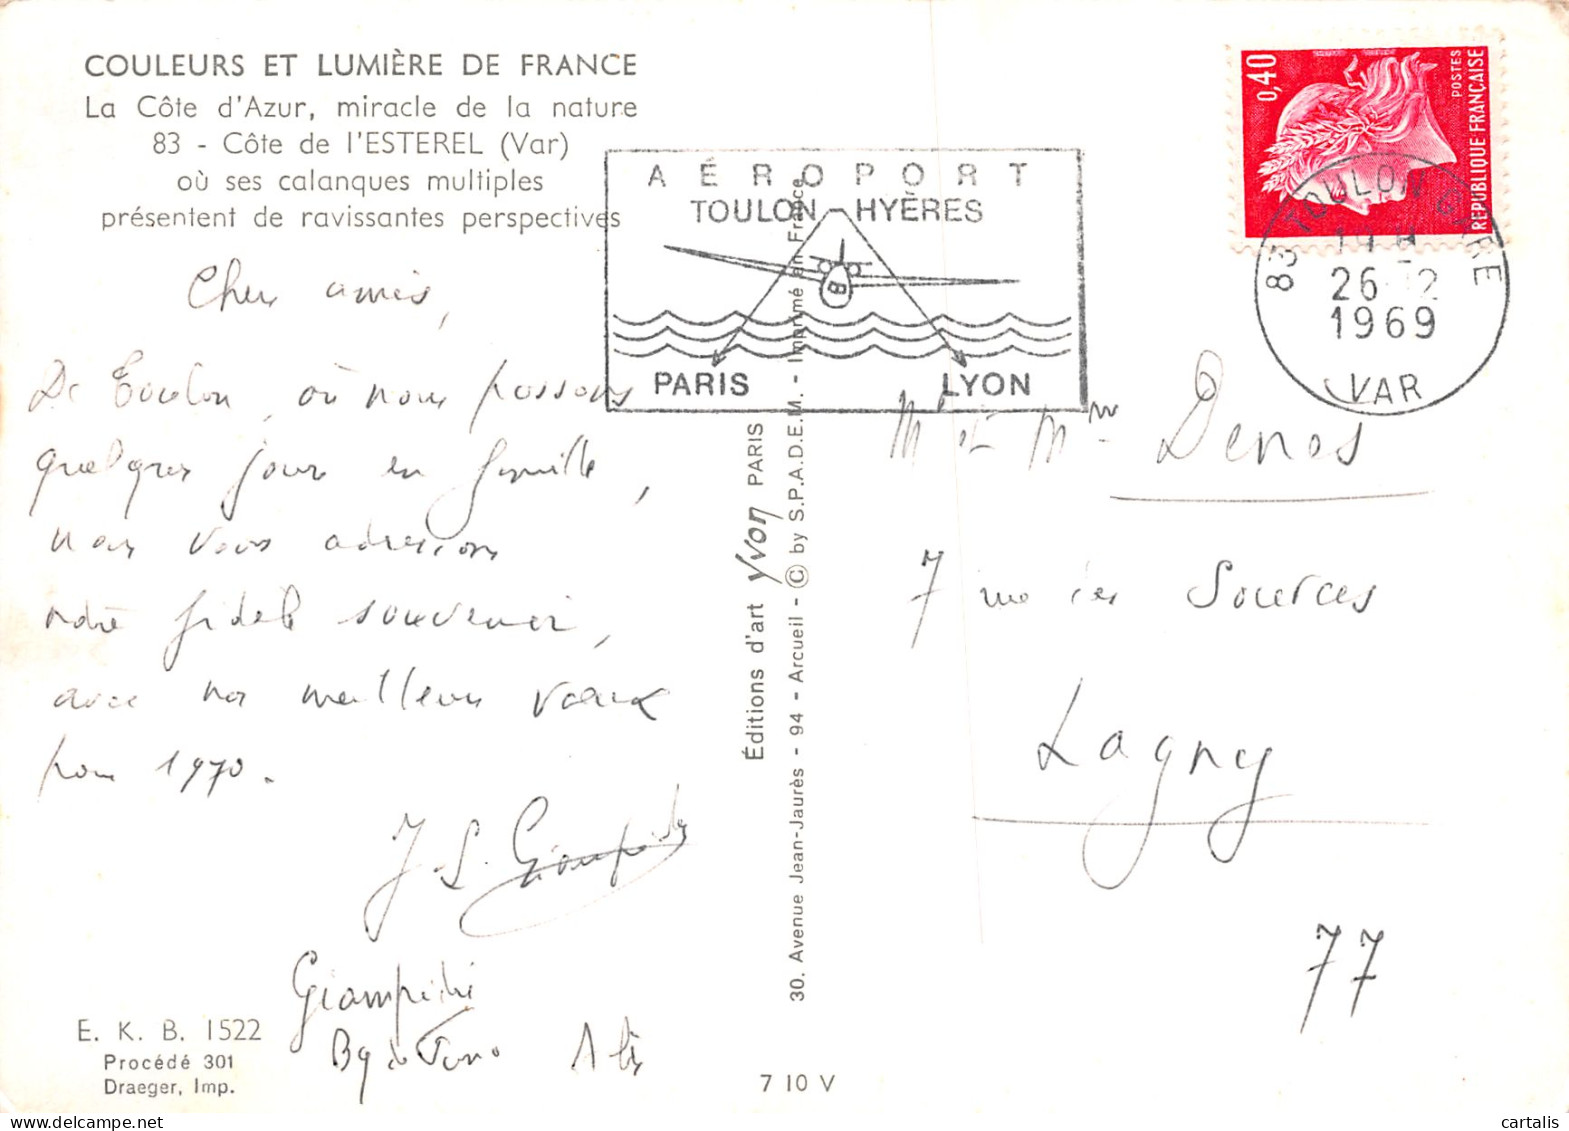 COULEURS ET LUMIÈRE DE FRANCE
La Côte d'Azur, miracle de la nature
83 - Côte de l'ESTEREL (Var)
où ses calanques multiples
présentent de ravissantes perspectives
Chers amis,
De Toulon, où nous passons
quelques jours en famille,
nous vous adressons
notre fidèle souvenir,
avec nos meilleurs vœux
pour 1970.
J. L.
E. K. B. 1522
Procédé 301
Draeger, Imp.
7 10 V
Éditions d'art Yvon PARIS
30. Avenue Jean-Jaurès - 94 - Arcueil - © by S.P.A.D.E.M. - Imprimé en France
AÉROPORT
TOULON - HYÈRES
PARIS LYON
0,40
POSTES
REPUBLIQUE FRANÇAISE
83 TOULON GARE
26-12
1969
VAR
M et Mme Denos
7 rue des Sources
Lagny
77